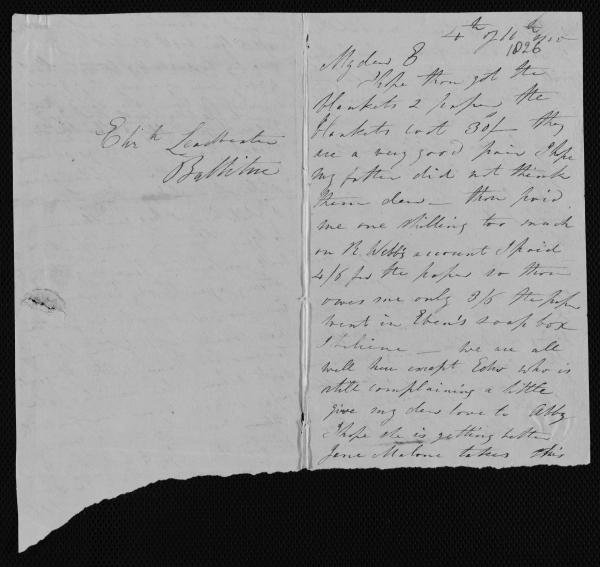 Eliz.th Leadbeater
Ballitore
4th of 10th mo
1826
My dear E
I hope thou got the
blankets & paper the
blankets cost 30/- they
are a very good pair I hope
my father did not think
them dear — thou paid
me one shilling too much
on R. Webb's account I paid
4/6 for the paper so thou
owes me only 3/6 the paper
went in Eben's soap box
I believe — we are all
well here except who is
still complaining a little
give my dear love to Abby
I hope she is getting better
Jane Malone takes this